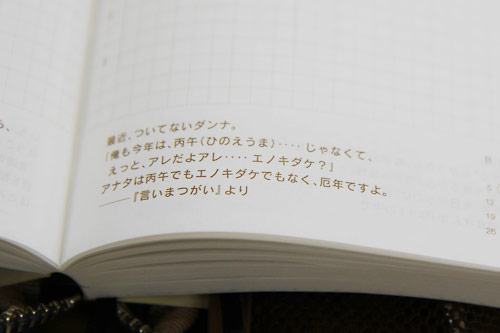 最近、ついてないダンナ。
「俺も今年は、丙午（ひのえうま）‥‥じゃなくて、
えっと、アレだよアレ‥‥エノキダケ？」
アナタは丙午でもエノキダケでもなく、厄年ですよ。
――『言いまつがい』より
5
12
19
26